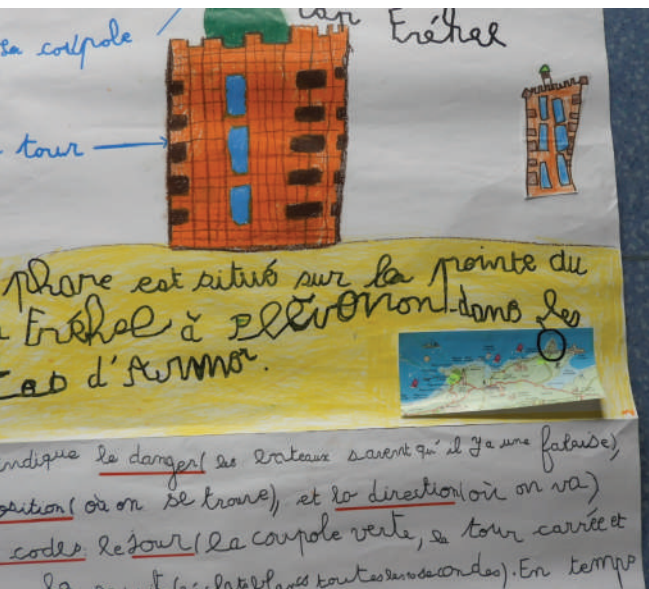 la coupole
cap Fréhel
tour
phare est situé sur la pointe du
Fréhel à PLÉVENON dans les
d'Armor.
indique le danger (les bateaux savent qu'il y a une falaise),
position (où on se trouve), et la direction (où on va)
codes le jour (la coupole verte, la tour carrée et
toutes les secondes). En temps